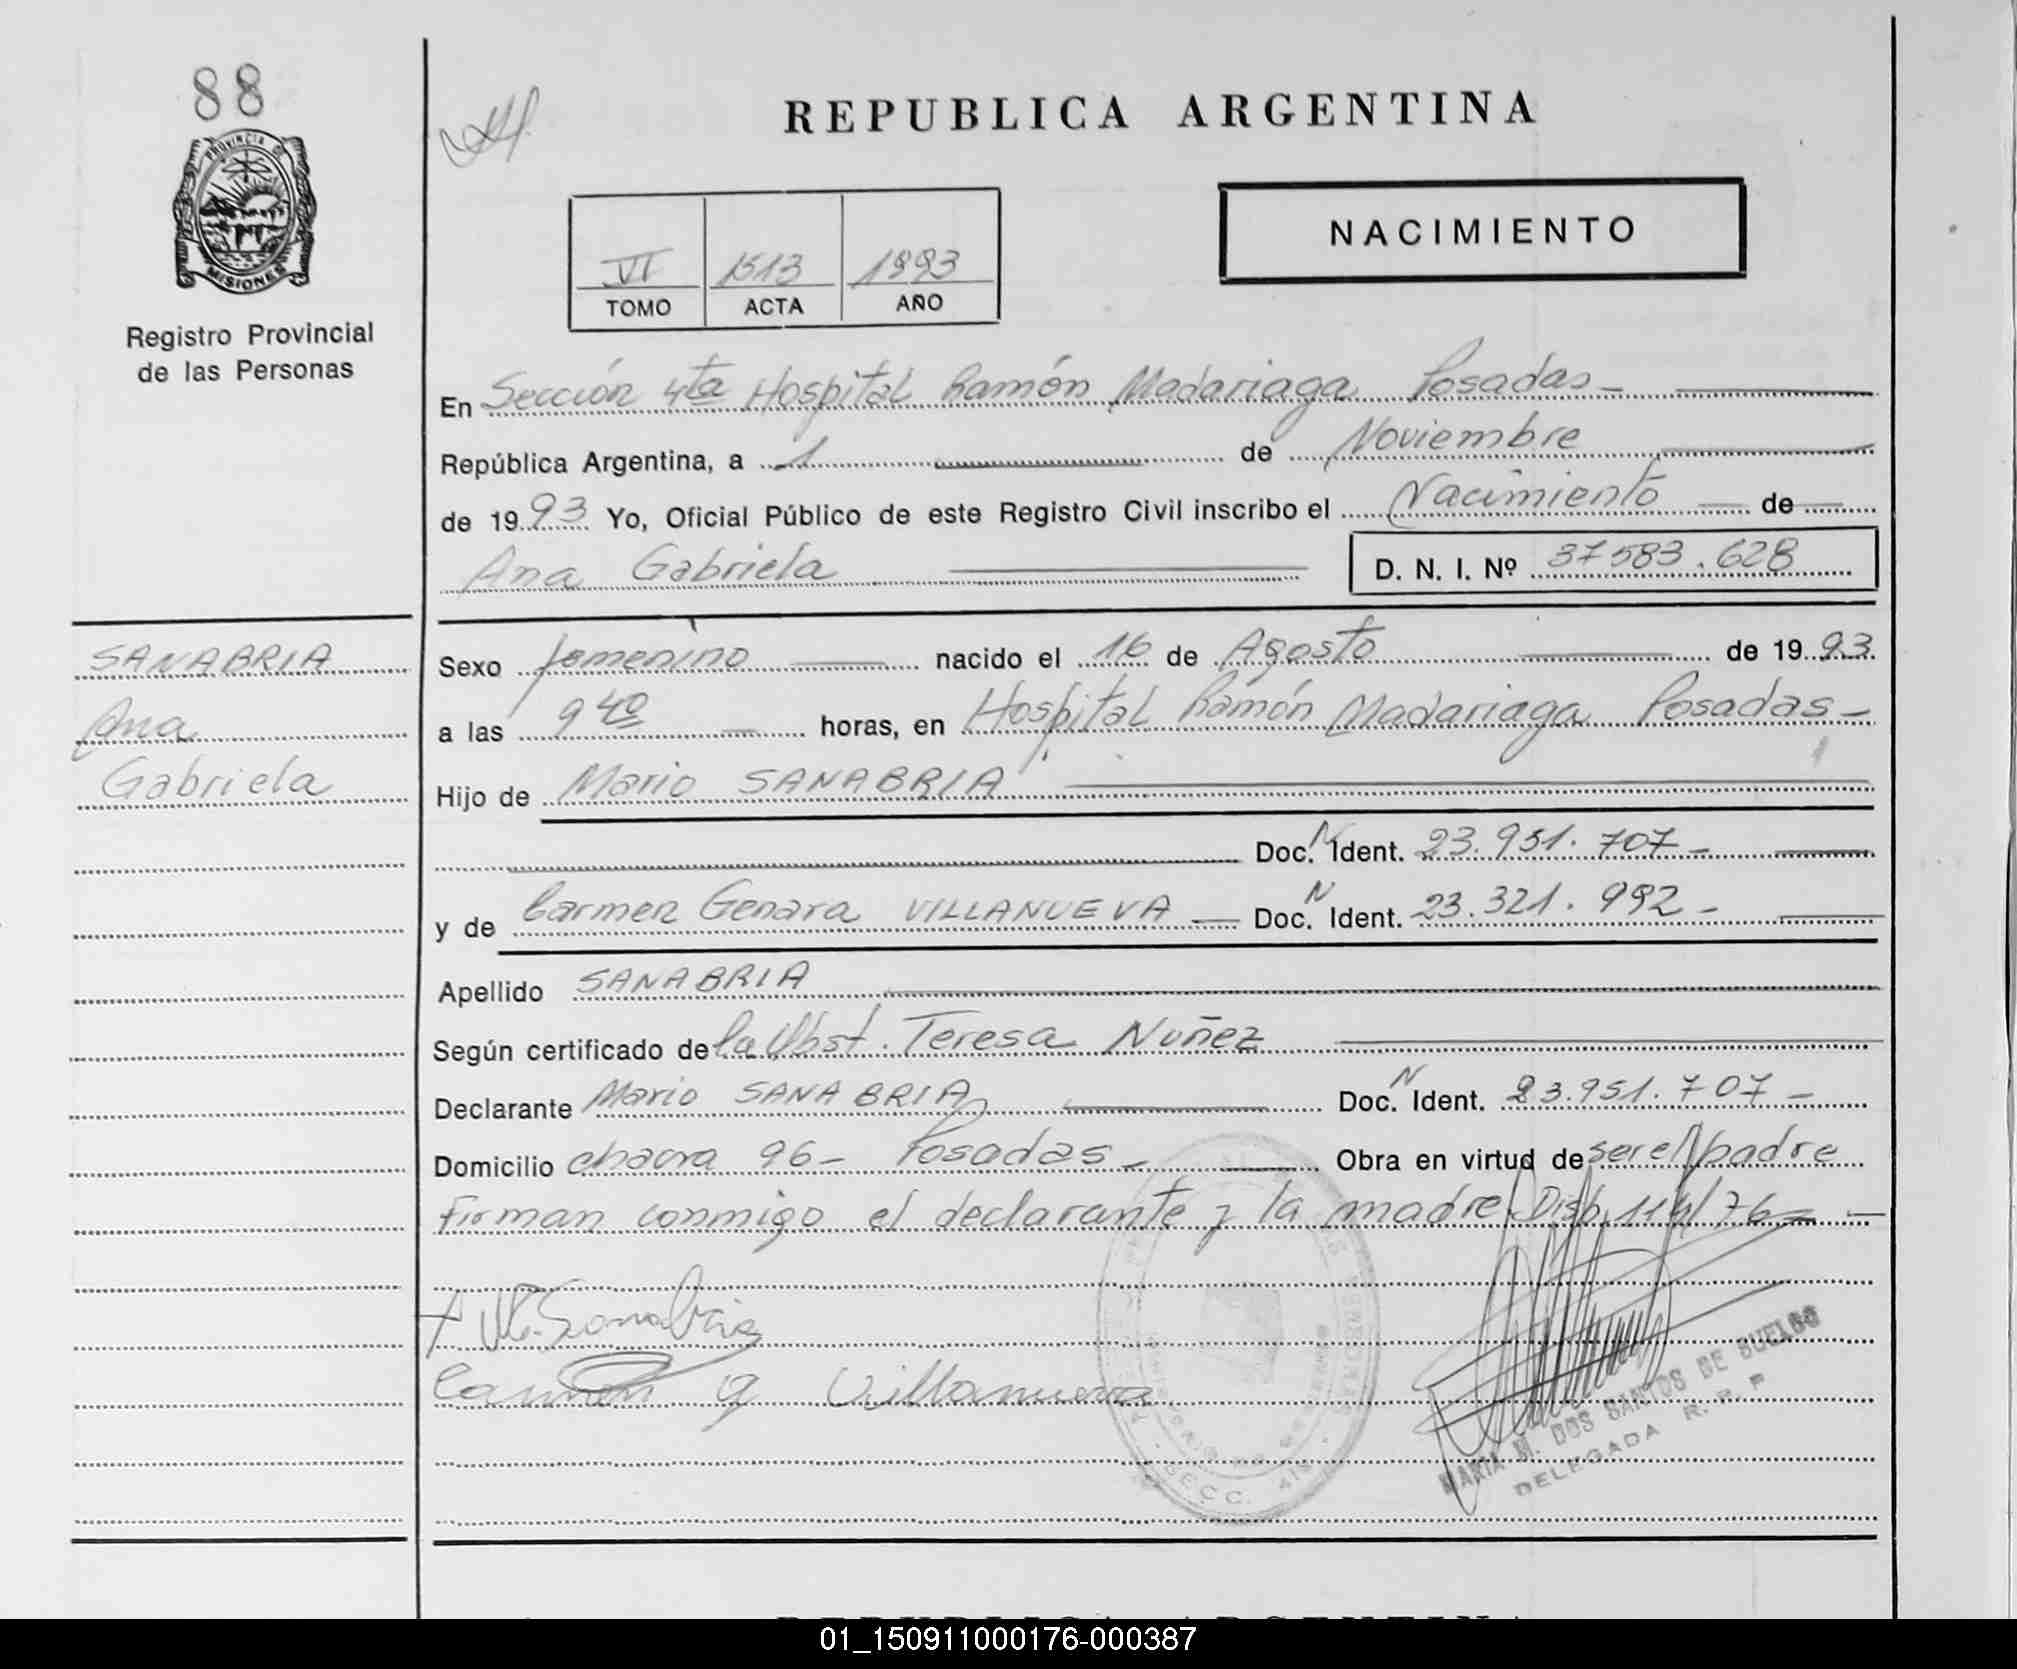 88
PROVINCIA DE
MISIONES
Registro Provincial
de las Personas
REPUBLICA ARGENTINA
NACIMIENTO
VI 1513 1993
TOMO ACTA AÑO
En Sección 4ta Hospital Ramón Madariaga Posadas-
República Argentina, a 1 de Noviembre
de 1993 Yo, Oficial Público de este Registro Civil inscribo el Nacimiento de
Ana Gabriela D. N. I. Nº 37583.628
SANABRIA
Ana
Gabriela
Sexo femenino nacido el 16 de Agosto de 1993
a las 9 40 horas, en Hospital Ramón Madariaga Posadas-
Hijo de Mario SANABRIA
Doc. N Ident. 23.951.707-
y de Carmen Genara VILLANUEVA Doc. N Ident. 23.321.992-
Apellido SANABRIA
Según certificado de la Obst. Teresa Nuñez
Declarante Mario SANABRIA Doc. N Ident. 23.951.707-
Domicilio chacra 96- Posadas- Obra en virtud de ser el padre
Firman conmigo el declarante y la madre Disp. 114/76-
M. Sanabria
Carmen G Villanueva
SECC. 4ta
MARIA M. DOS SANTOS DE BUELGO
DELEGADA R. P. P
REPUBLICA ARGENTINA
01_150911000176-000387